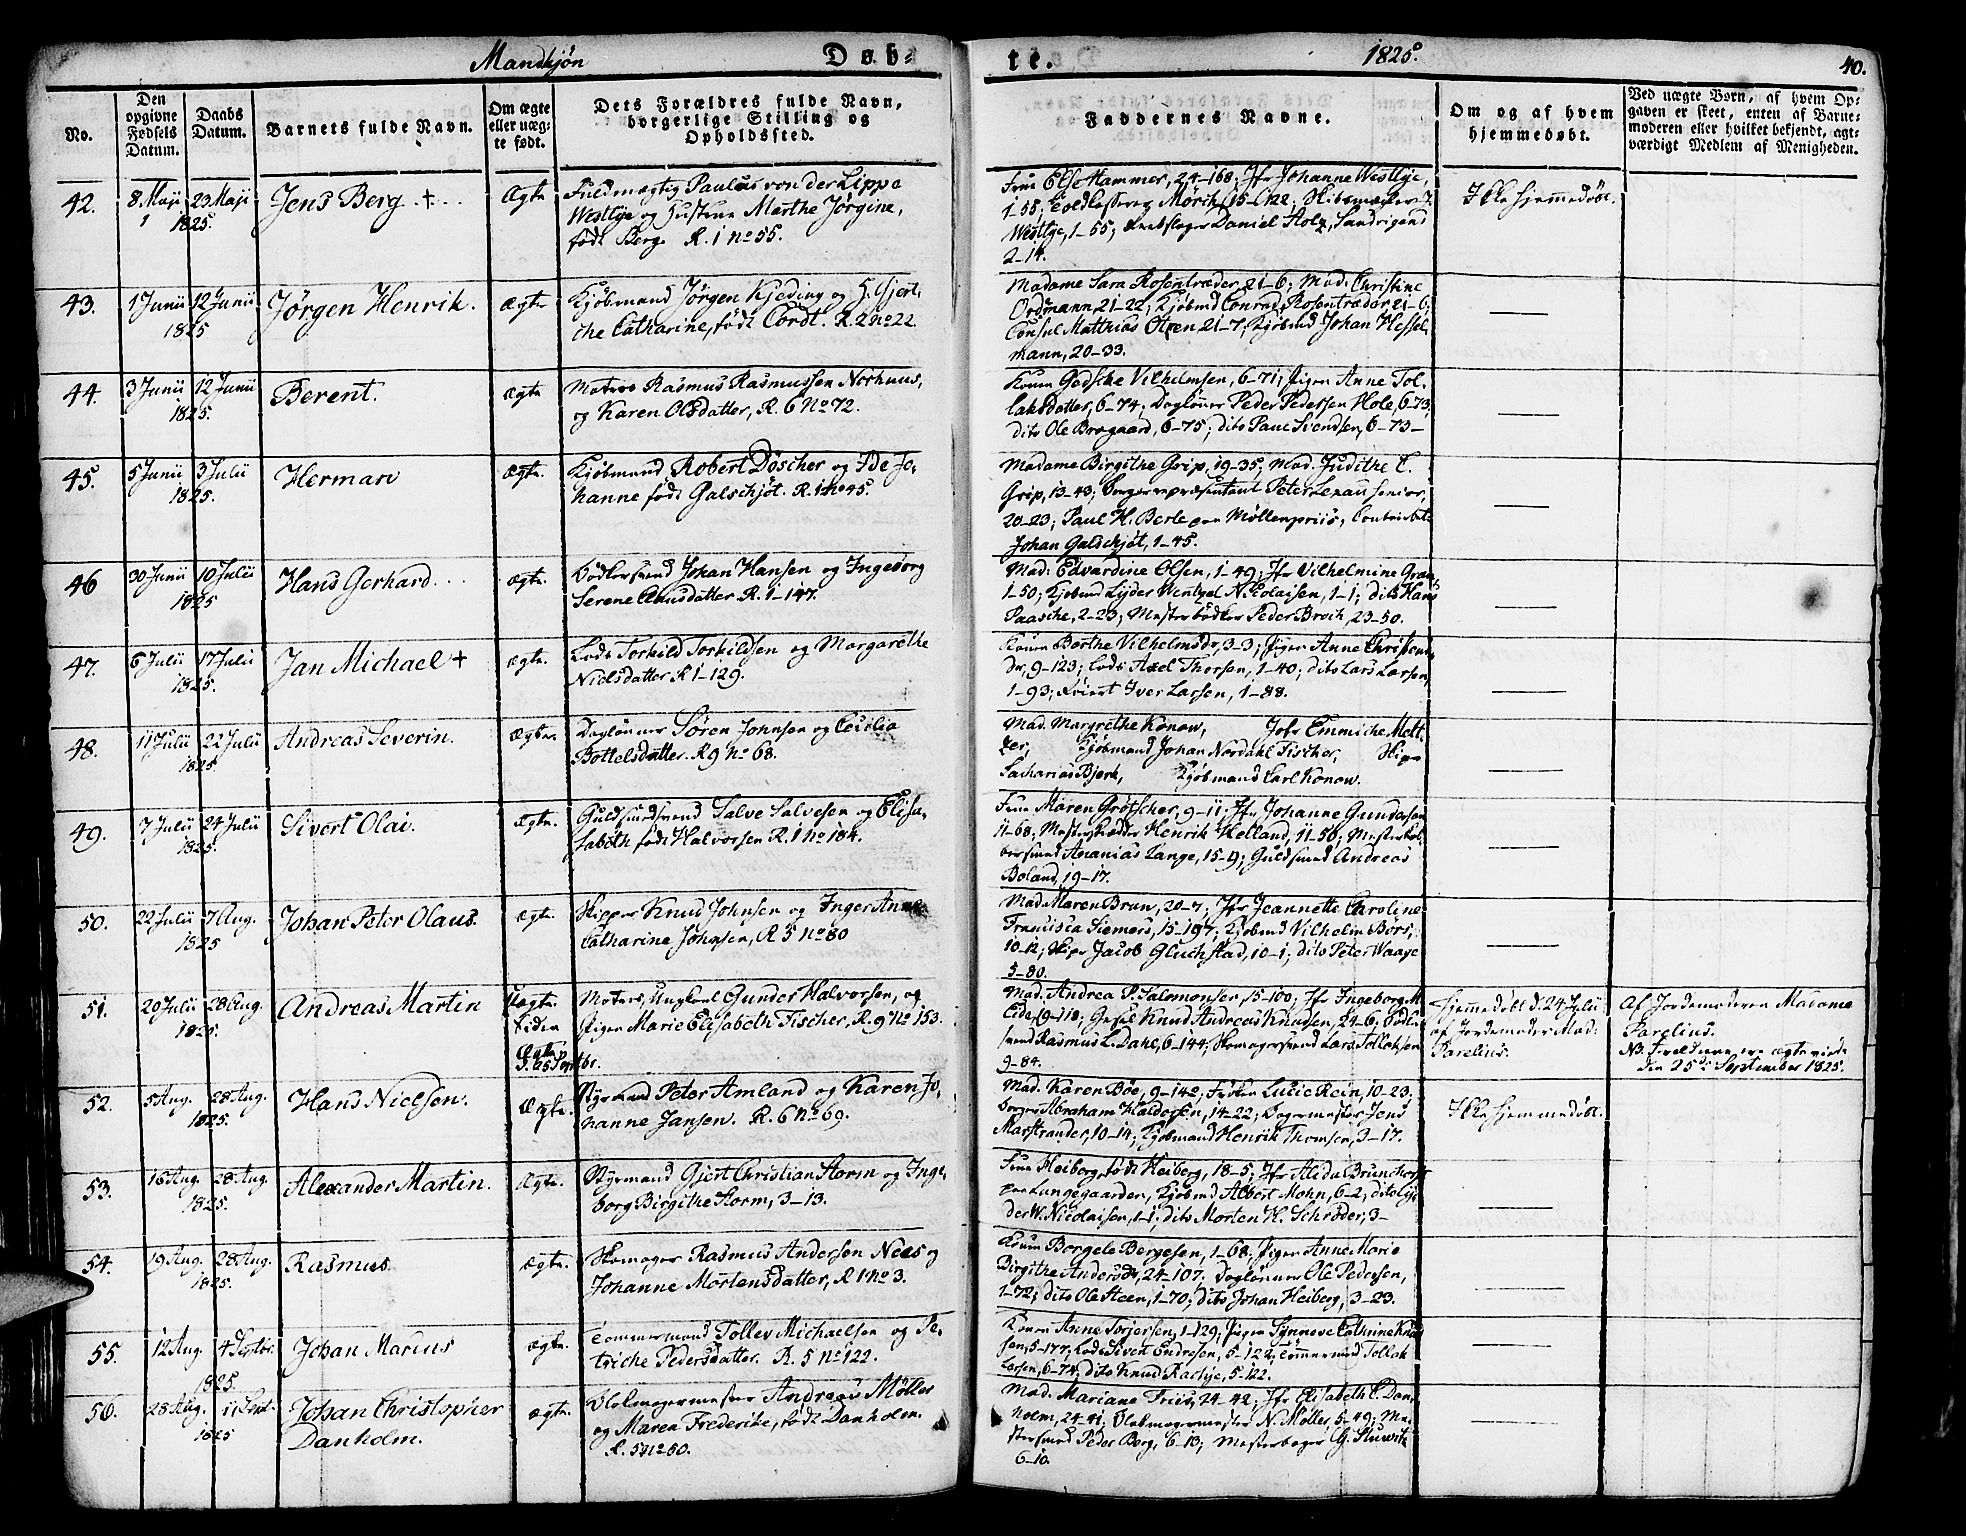 Mandkjøn
Døb-
te.
1825.
40.
No.
Den opgivne Fødsels Datum.
Daabs Datum.
Barnets fulde Navn.
Om ægte eller uægte født.
Dets Forældres fulde Navn, borgerlige Stilling og Opholdssted.
Faddernes Navne.
Om og af hvem hjemmedøbt.
Ved uægte Børn, af hvem Op-
gaven er skeet, enten af Barne-
moderen eller hvilket bekjendt, agt-
værdigt Medlem af Menigheden.
42.
8 Maji 23 Maji
1825.
Jens Berg +
Ægte
Fuldmægtig Paulus von der Lippe
Westlye og Hustrue Marthe Jørgine,
født Berg. R. 1 No 55.
Frue Else Hammer, 24-168; Jfr Johanne Westlye,
1-55; Mørik, 15-122, Skibsmægler J.
Westlye, 1-55; Daniel Holz, Sandvigens
2-14.
Ikke hjemmedøbt.
43.
1 Junii 12 Junii
1825
Jørgen Henrik.
ægte
Kjøbmand Jørgen Kjeding og H. Gjert-
che Catharine, født Cordt. R. 2 No 22.
Madame Sara Rosentræder, 21-6; Mad. Christine
Ordmann, 21-22; Kjøbmd Conrad Rosentræder 21-6;
Consul Matthias 21-7; Kjøbmd Johan Hessel-
mann, 20-33.
44.
3 Junii 12 Junii
1825.
Berent.
ægte
Matros Rasmus Rasmussen Norhuus,
og Karen Olsdatter, R. 6 No 72.
Konen Godske Vilhelmsen, 6-71; Pigen Anne Tol-
laksdatter, 6-74; Dagløner Peder Pedersen Hole, 6-73,
dito Ole Brogaard, 6-75; dito Paul Svendsen, 6-73-
45.
5 Junii 3 Julii
1825.
Herman
ægte.
Kjøbmand Robert Døscher og Ide Jo-
hanne født Galschjøt. R. 1 No 45.
Madame Birgithe Grip, 19-35; Mad. Judithe C.
Grip, 13-43; Borgerrepræsentant Peter Lexau senior,
20-23; Paul H. Berle paa Møllenpriis,
Johan Galschjøt, 1-45.
46
30 Junii 10 Julii
1825
Hans Gerhard.
ægte.
Bødkersvend Johan Hansen og Ingeborg
Serene Clausdatter R. 1-147.
Mad: Edvardine Olsen, 1-49; Jfr Vilhelmine Gran,
1-50; Kjøbmd Lyder Wentzel Nicolaisen, 1-1; dito Hans
Paasche, 2-23; Mesterbødker Peder Broch, 23-50.
47.
6 Julii 17 Julii
1825.
Jan Michael +
ægte.
Lods Torkild Torkildsen og Margarethe
Nielsdatter R 1-129.
Konen Berthe Vilhelmsdr, 3-3; Pigen Anne Christens-
dr, 9-123; Lods Axel Thorsen, 1-40; dito Lars Larsen,
1-93; Iver Larsen, 1-88.
48.
11 Julii 22 Julii
1825.
Andreas Severin.
ægte.
Dagløner Søren Johnsen og Cecilia
Bottelsdatter. R 9 No 68.
Mad. Margrethe Konow, Jofr Emmiche Melt-
zer, Kjøbmand Johan Nordahl Fischer, Skipr
Sacharias Bjerk, Kjøbmand Carl Konow.
49.
7 Julii 24 Julii
1825.
Sivert Olai.
ægte.
Guldsmedsvend Salve Salvesen og Elisa-
sabeth født Halvorsen R. 1 No 184.
Frue Maren Grøtscher, 9-11; Jfr Johanne Gundersen
11-68; Henrik Helland, 11-56;
Ananias Lange, 15-9; Guldsmed Andreas
Boland, 19-17.
50.
22 Julii 7 Aug.
1825
Johan Peter Olaus.
ægte.
Skipper Knud Johnsen og Inger Anne
Catharine Johnsen, R 5 No 80
Mad. Maren Brun, 20-7; Jfr Jeannette Caroline
Francisca Siemers, 15-197; Kjøbmd Vilhelm Børs,
10-12; Skipr Jacob Gluchstad, 10-1; dito Peter Waage
5-80.
51.
20 Julii 28 Aug.
1825.
Andreas Martin
Uægte.
siden
Ægte
Matros, Ungkarl Gunder Halvorsen, og
Pigen Marie Elisabeth Fischer, R. 9 No 153.
Mad. Andrea P. Salomonsen, 15-100; Jfr Ingeborg M.
Eide, 9-118; Gesel Knud Andreas Knudsen, 24-6; Bødker-
svend Rasmus L. Dahl, 6-144; Skomagersvend Lars Tollaksen
9-84.
Hjemmedøbt d. 24 Julii
af Jordemoder Mad:
Parelius.
Af Jordemoderen Madame
Parelius.
NB. Forældrene ere ægteviede
den 25de September 1825.
52.
5 Aug. 28 Aug.
1825.
Hans Nielsen.
Ægte.
Styrmand Peter Amland og Karen Jo-
hanne Jansen. R. 6 No 69.
Mad. Karen Bøe, 9-142; Frøken Lucie Rein, 10-23.
Borger Abraham Haldorsen, 14-22; Jens
Marstrander, 10-14; Kjøbmand Henrik Thomsen, 3-17.
Ikke hjemmedøbt.
53.
16 Aug. 28 Aug.
1825.
Alexander Martin.
Ægte.
Styrmand Gjert Christian Storm og Inge-
borg Birgithe Storm, 3-13.
Frue Heiberg, født Heiberg, 18-5; Jfr Alida Brunchorst
paa Lungegaarden, Kjøbmd Albert Mohn, 6-2; dito Ly-
der W. Nicolaisen, 1-1; dito Morten H. Schrøder, 3-
54.
19 Aug. 28 Aug.
1825.
Rasmus
ægte.
Skomager Rasmus Andersen Nees og
Johanne Mortensdatter, R 1 No 3.
Konen Borgele Bergesen, 1-68; Pigen Anne Marie
Birgithe Andersdr, 24-107, Dagløner Ole Pedersen,
1-72; dito Ole Steen, 1-70; dito Johan Heiberg, 3-23.
55.
12 Aug. 4 Septbr.
1825.
Johan Marius
ægte.
Tømmermand Tollev Michaelsen og Pe-
triche Pedersdatter. R. 5 No 122.
Konen Anne Torjersen, 1-129; Pigen Synneve Cathrine Knud-
sen, 5-177; Lods Sivert Endresen, 5-122; Tømmermd Tollak
Larsen, 6-74; dito Knud 5-122.
56.
28 Aug. 11 Sept.
1825
Johan Christopher
Danholm.
ægte.
Blokmagermester Andreas Møller
og Maren Frederike, født Danholm.
R. 5 No 50.
Mad. Mariane Friis, 24-42; Jfr Elisabeth C. Dan-
holm, 24-41; Blokmagermester N. Møller, 5-49; Me-
stersmed Peder Berg, 6-13; Mesterbager G. Sturwitz
6-10.